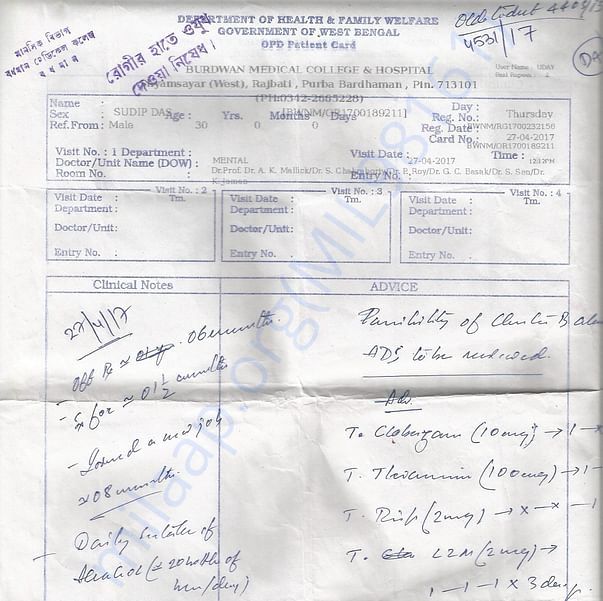 DEPARTMENT OF HEALTH & FAMILY WELFARE
GOVERNMENT OF WEST BENGAL
OPD Patient Card
4531/17
মানসিক বিভাগ
বর্ধমান মেডিকেল কলেজ
বর্ধমান
রোগীর হাতে ওষুধ
দেওয়া নিষেধ।
User Name : UDAY
BURDWAN MEDICAL COLLEGE & HOSPITAL
Shyamsayar (West), Rajbati , Purba Bardhaman , Pin. 713101
(PH:0342-2665228)
Name : SUDIP DAS [BWNM/OR1700189211] Day : Thursday
Sex : Male Age : 30 Yrs. 0 Months 0 Days Reg. No.: BWNM/RG1700232156
Reg. Date : 27-04-2017
Ref.From : Card No.: BWNM/OR1700189211
Visit No. : 1 Department : MENTAL Visit Date : 27-04-2017 Time : 12:12PM
Doctor/Unit Name (DOW) : Dr.Prof. Dr. A. K. Mallick/Dr. S. Chakraborty/Dr. P. Roy/Dr. G. C. Basak/Dr. S. Sen/Dr.
Room No. : Entry No. :
Visit No. : 2 Visit No. : 3 Visit No. : 4
Visit Date : Tm. Visit Date : Tm. Visit Date : Tm.
Department : Department : Department :
Doctor/Unit: Doctor/Unit: Doctor/Unit:
Entry No. : Entry No. : Entry No. :
Clinical Notes ADVICE
27/4/17
Off Rx ≈ 06 months
for ≈ 01 1/2 months
- Joined a new job
≈ 08 months
- Daily intake of
Alcohol
Possibility of Cluster B
to be reviewed.
Adv
T. Clobazam (10mg) → 1-
T. Thiamin (100mg) → 1-
T. Risp (2mg) → x-x-1
T. LZM (2mg) →
1-1-1 x 3 days
milaap.org